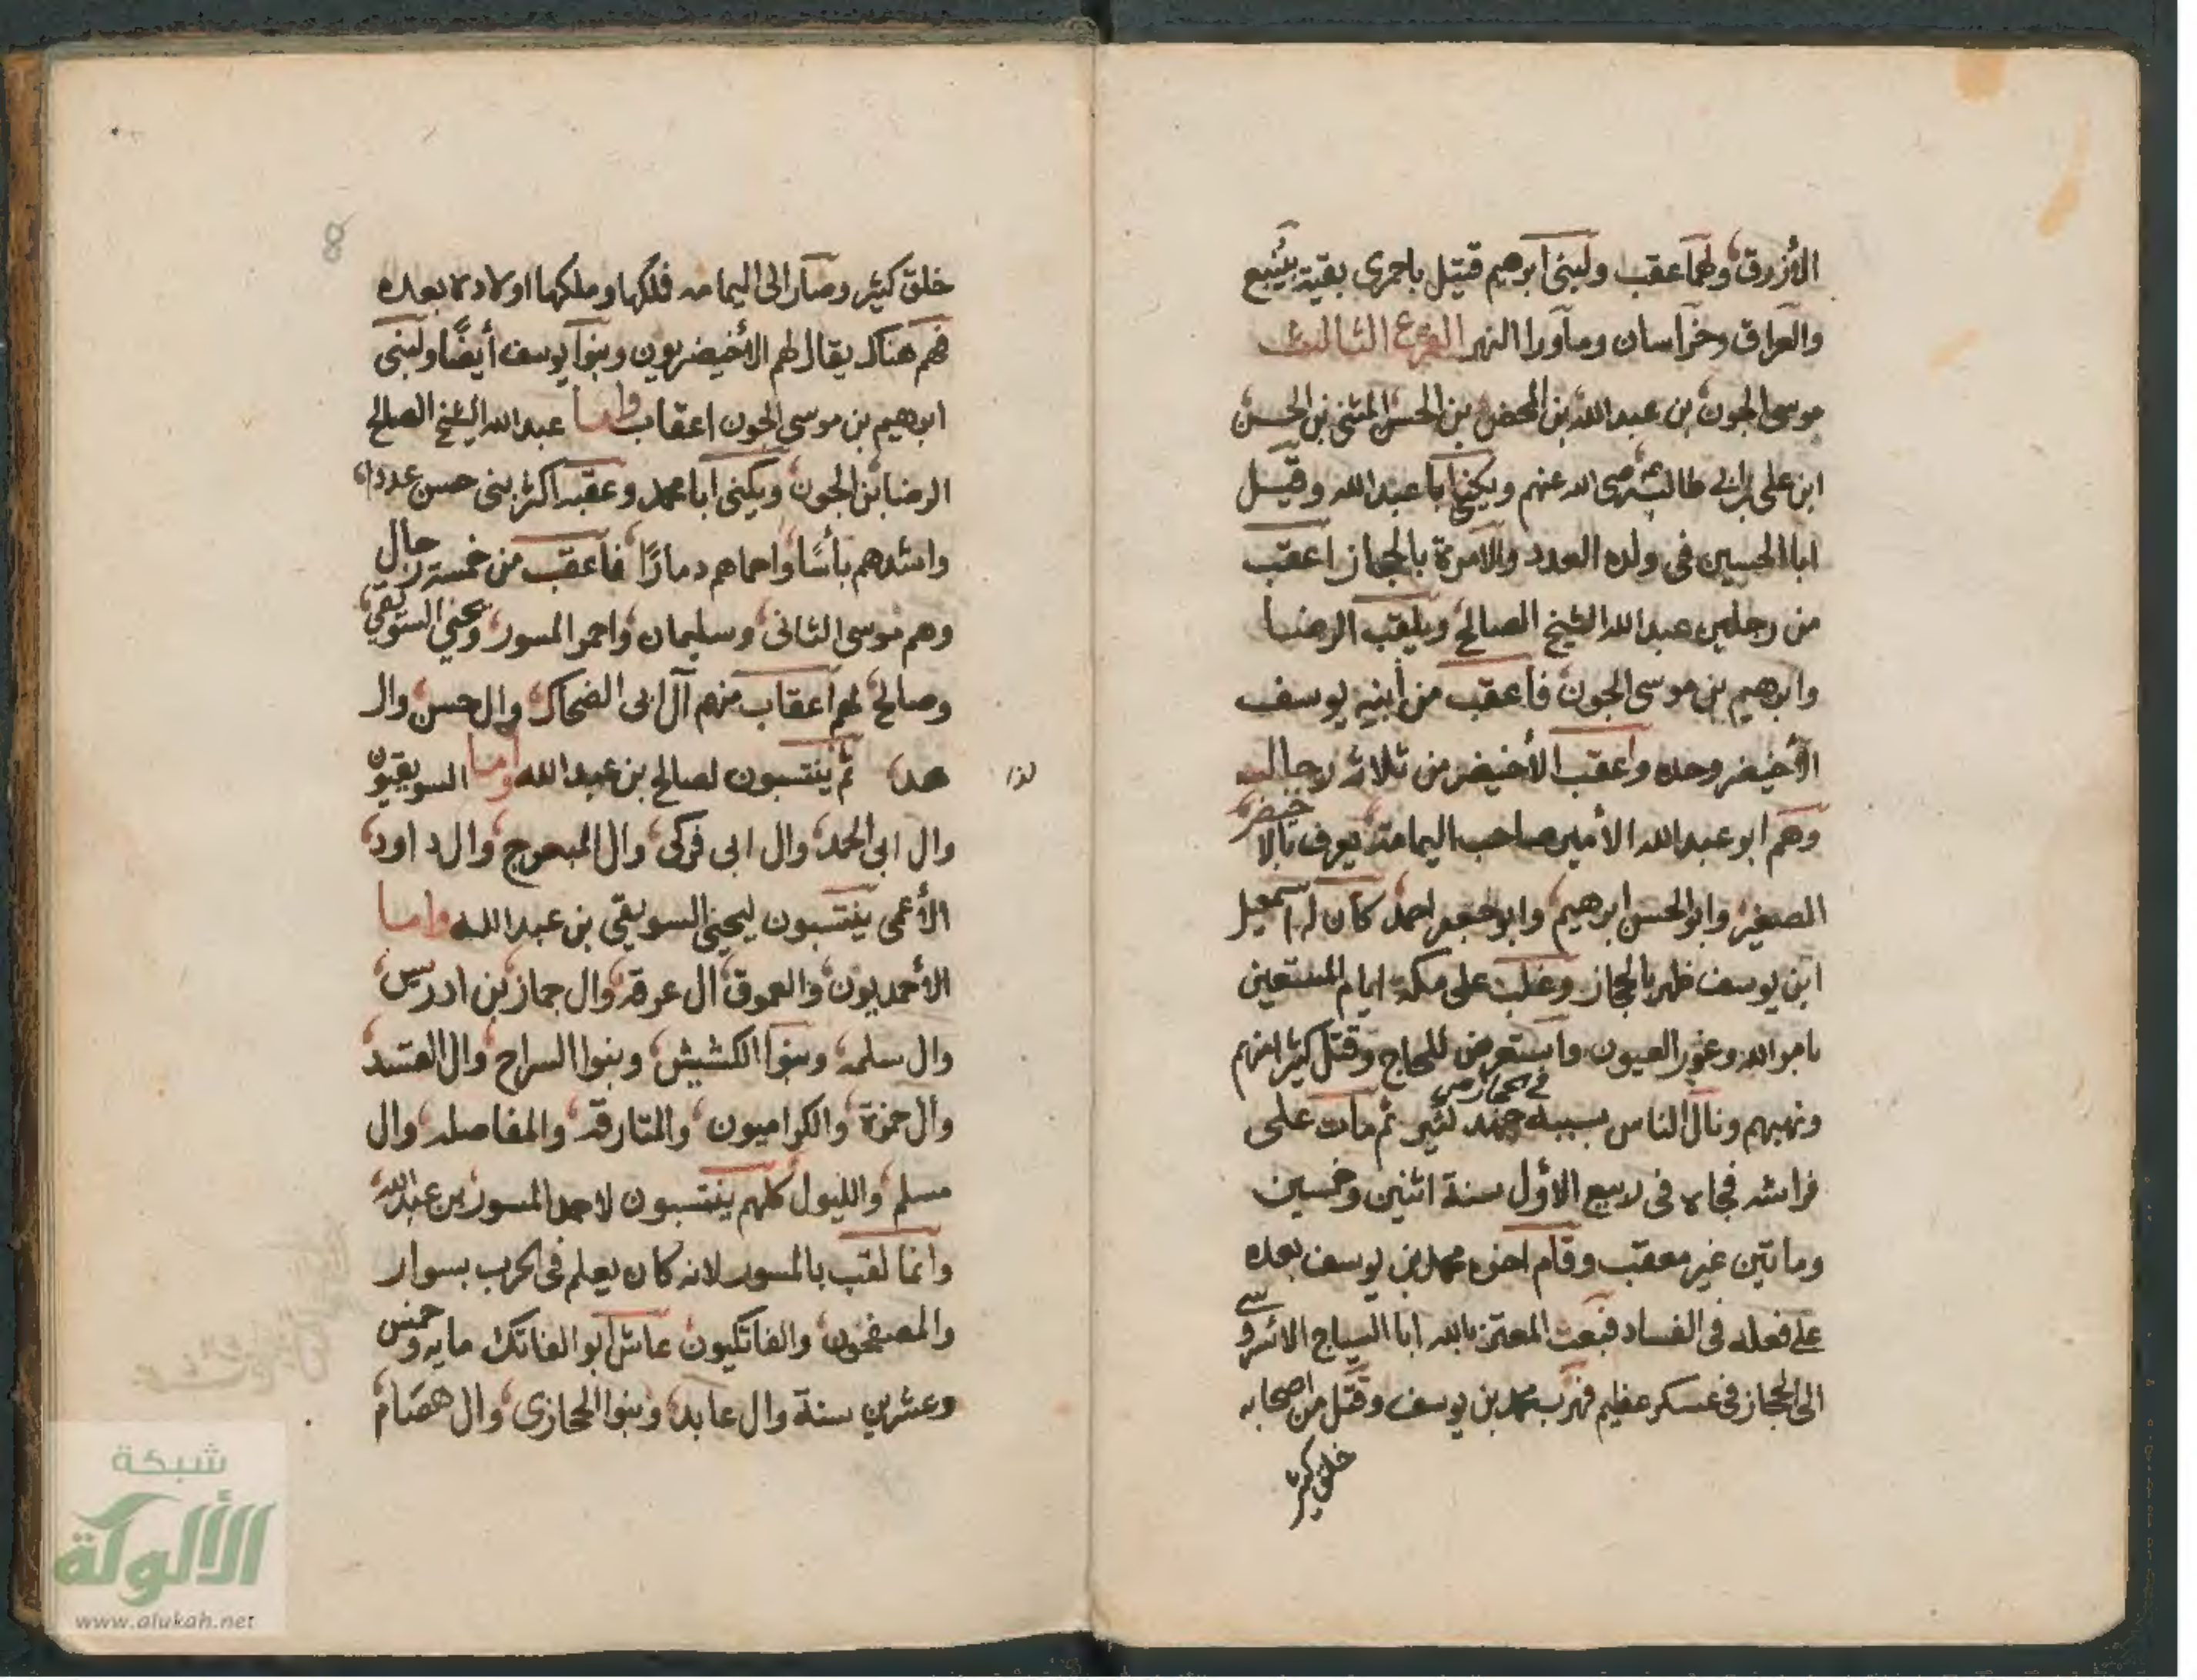 الأزرق ولهما عقب ولبني ابرهيم قتيل باخمرى بقية بينبع
والعراق وخراسان وماورا النهر الفرع الثالث
موسى الجون بن عبد الله بن المحض بن الحسن المثنى بن الحسن
ابن علي بن ابي طالب رضي الله عنهم ويكنى ابا عبد الله وقيل
ابا الحسين في ولده العدد والامرة بالحجاز اعقب
من رجلين عبد الله الشيخ الصالح ويلقب الرضا
وابرهيم بن موسى الجون فأعقب من أبنه يوسف
الأخيضر وحده واعقب الأخيضر من ثلاثة رجال
وهم ابو عبد الله الأمير صاحب اليمامة يعرف بالاخيضر
الصغير وابو الحسن ابرهيم وابو جعفر احمد كان له اسمعيل
ابن يوسف ظهر بالحجاز وغلب على مكة ايام المستعين
بامر الله وغور العيون واستعرض للحاج وقتل كثيرا منهم
ونهبهم ونال الناس بسببه في الحجاز جهد كثير ثم مات على
فراشه فجاه في ربيع الأول سنة اثنين وخمسين
وماتين غير معقب وقام اخوه محمد بن يوسف بعده
على فعله في الفساد فبعث المعتز بالله ابا الساج الاشروسي
الى الحجاز في عسكر عظيم فهرب محمد بن يوسف وقتل من اصحابه
خلق كثير
8
خلق كثير وصار الى اليمامه فملكها وملكها اولاده بعده
فهم هناك يقال لهم الأخيضريون وبنوا يوسف أيضًا ولبني
ابرهيم بن موسى الجون اعقاب واما عبد الله الشيخ الصالح
الرضا بن الجون ويكنى ابا محمد وعقبه اكثر بني حسن عددا
واشدهم بأسًا واحماهم دمارًا فأعقب من خمسة رجال
وهم موسى الثاني وسليمان واحمد المسور ويحيى السويقي
وصالح لهم اعقاب منهم آل ابي الضحاك وال حسن وال
هد ثم ينتسبون لصالح بن عبد الله واما السويقيون
وال ابي الحمد وال ابي فركي وال المبعوج وال داود
الأعمى ينتسبون ليحيى السويقي بن عبد الله واما
الأحمديون والعموق آل عرفة وال جماز بن ادريس
وال سلمه وبنوا الكشيش وبنوا السراح وال
وآل حمزة والكراميون والمتارفه والمفاصله وال
مسلم والليول كلهم ينتسبون لاحمد المسور بن عبد الله
وانما لقب بالمسور لانه كان يعلم في الحرب بسوار
والمصفحون والفاتكيون عاش ابو الفاتك مايه وخمس
وعشرين سنة وال عابد وبنوا الحجازي وال هضام
شبكة
الألوكة
www.alukah.net